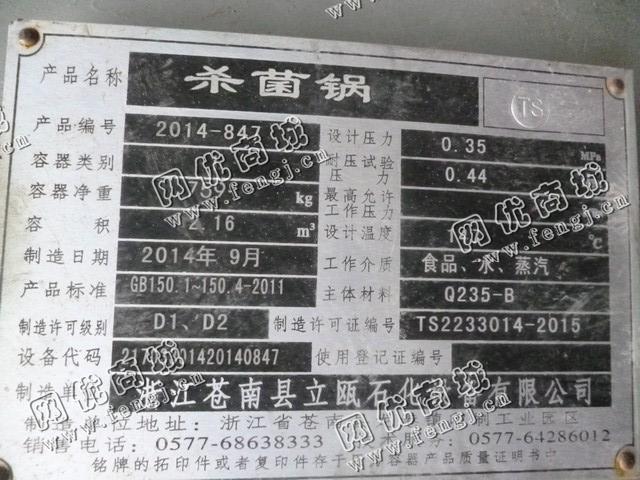 产品名称 杀菌锅
TS
产品编号 2014-847 设计压力 0.35 MPa
容器类别 耐压试验压力 0.44
容器净重 kg 最高允许工作压力
容积 2.16 m³ 设计温度 ℃
制造日期 2014年9月 工作介质 食品、水、蒸汽
产品标准 GB150.1~150.4-2011 主体材料 Q235-B
制造许可级别 D1、D2 制造许可证编号 TS2233014-2015
设备代码 01420140847 使用登记证编号
制造单 浙江苍南县立瓯石化 备有限公司
制造单位地址：浙江省苍南 制工业园区
销售电话：0577-68638333 0577-64286012
铭牌的拓印件或者复印件存于压力容器产品质量证明书中
网优商城
www.fengj.cn
网优商城
www.fengj.cn
网优商城
www.fengj.cn
网优商城
www.fengj.cn
网优商城
www.fengj.cn